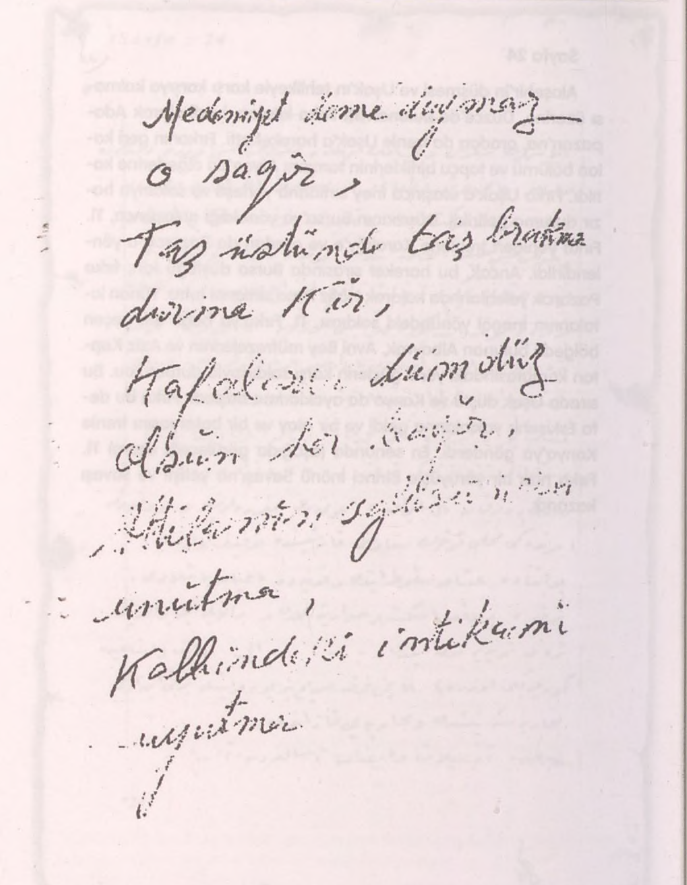 Medeniyet deme duymaz
o sağır,
Taş üstünde taş bırakma
durma kır,
Kafalarını dümdüz
olsun her bayır,
Attilanın oğlusun sen
unutma,
Kalbindeki intikamı
uyutma